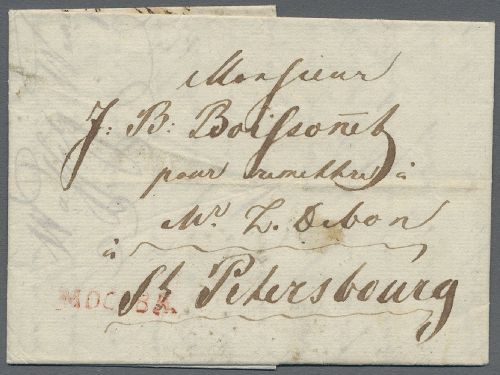 Monsieur
J: B: Boissonet
pour remettre à
Mr. L. Debon
à
St. Petersbourg
МОСКВА.